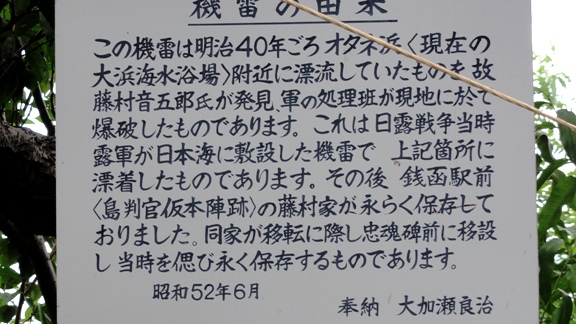 機雷の由来
この機雷は明治40年ごろオタネ浜〈現在の
大浜海水浴場〉附近に漂流していたものを故
藤村音五郎氏が発見、軍の処理班が現地に於て
爆破したものであります。これは日露戦争当時
露軍が日本海に敷設した機雷で 上記箇所に
漂着したものであります。その後 銭函駅前
〈島判官仮本陣跡〉の藤村家が永らく保存して
おりました。同家が移転に際し忠魂碑前に移設
し当時を偲び永く保存するものであります。
昭和52年6月
奉納 大加瀬良治